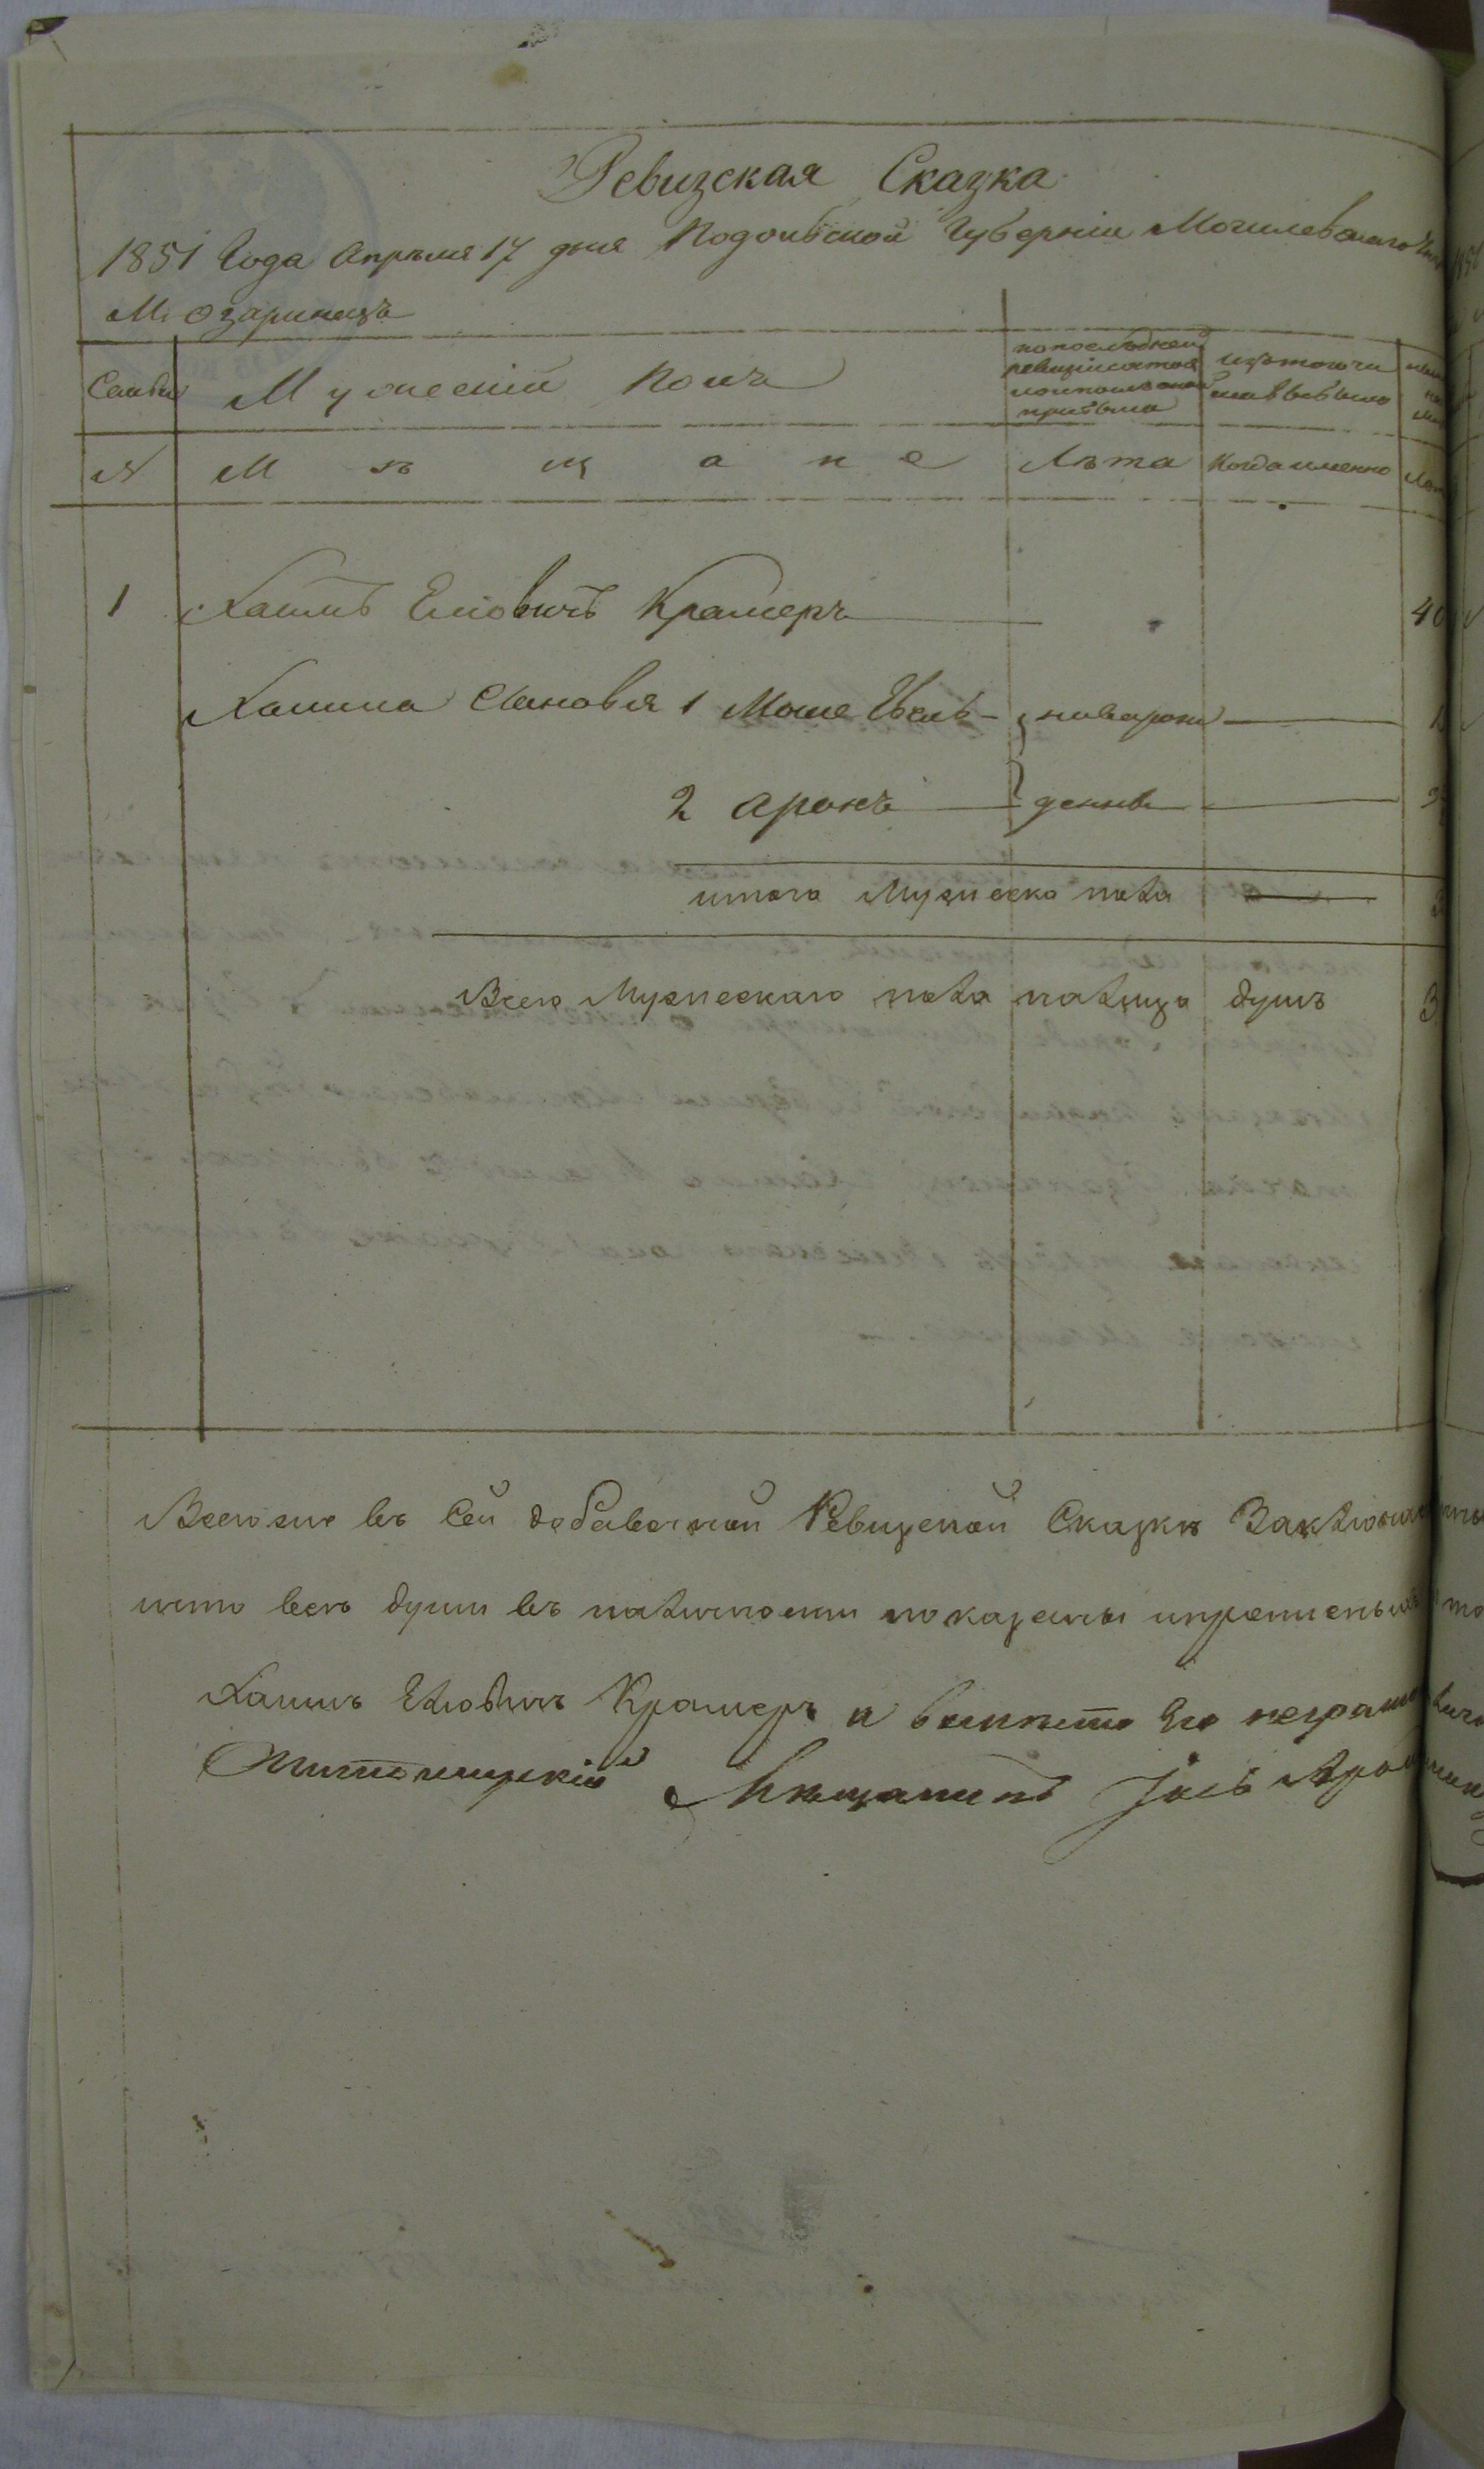 Ревизская Сказка
1851 Года Апрѣля 17 дня Подольской Губерніи Могилевскаго
М. Озаринецъ
Семьи Мужескій Полъ по послѣдней ревизіи состояло изъ того числа выбыло
№ Мѣщане Лѣта Когда именно
1 Хаимъ Елiовичъ Крамеръ 40
Хаима Сыновья 1 Моше Іоель новорож
2 Аронъ денны
итого Мужеска пола
Всего Мужескаго пола налицо душъ 3
Всего въ Сей добавочной Ревизской Сказки
что всѣ души въ наличности показаны и прописныхъ
Хаимъ Еліовичъ Крамеръ а вмѣсто Его неграмот
Мѣщанинъ Іось